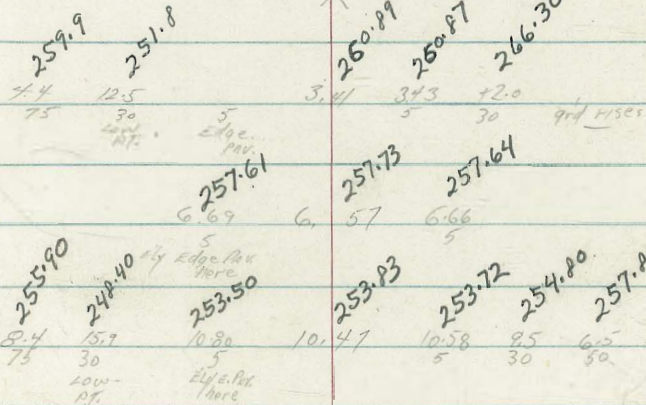 259.9 251.8 260.89 260.87 266.30
4.4 12.5 3.41 3.43 +2.0
75 30 5 5 30 grd rises
Low Edge
pt. pav.
257.61 257.73 257.64
6.69 6.57 6.66
5 5
Ely Edge Pav.
here
255.90 248.40 253.50 253.83 253.72 254.80 257.8
8.4 15.9 10.80 10.47 10.58 9.5 6.5
75 30 5 5 30 50
Low- Ely E. Pav.
pt. here